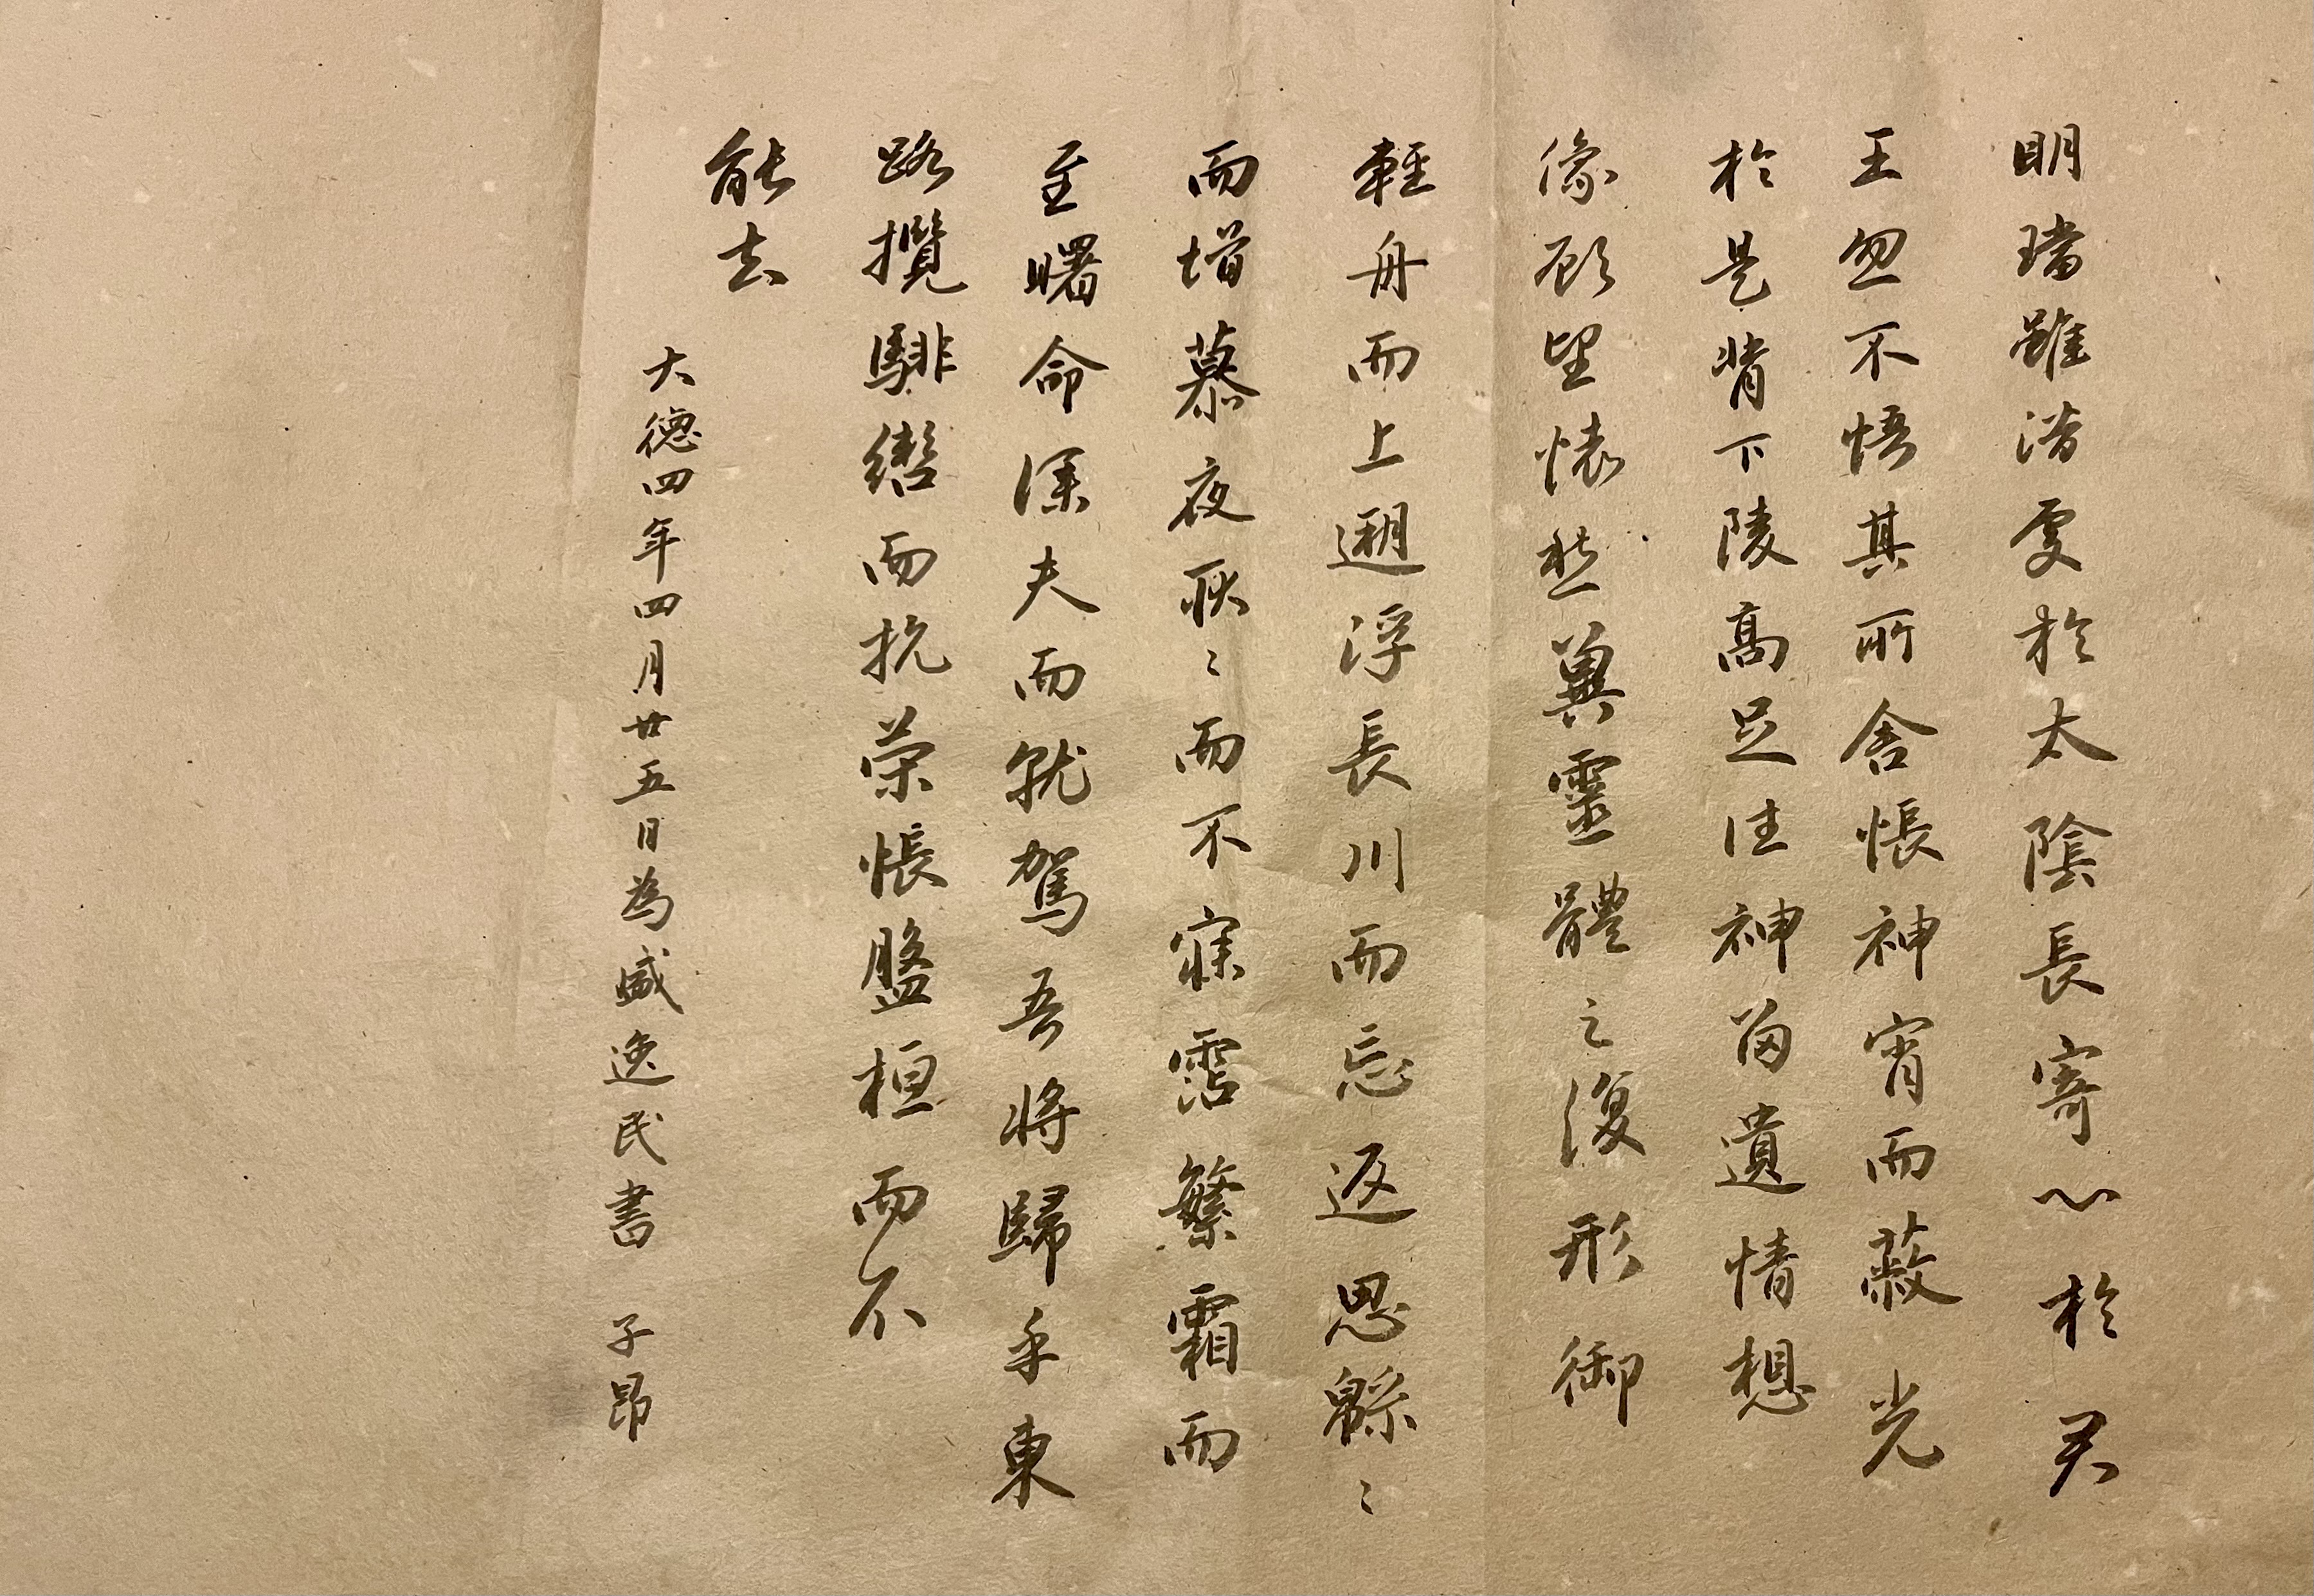 明璫雖潛處於太陰長寄心於君
王忽不悟其所舍悵神宵而蔽光
於是背下陵高足往神留遺情想
像顧望懷愁冀靈體之復形御
輕舟而上遡浮長川而忘返思緜〻
而增慕夜耿〻而不寐霑繁霜而
至曙命僕夫而就駕吾將歸乎東
路攬騑轡而抗策悵盤桓而不
能去
大德四年四月廿五日為盛逸民書 子昂